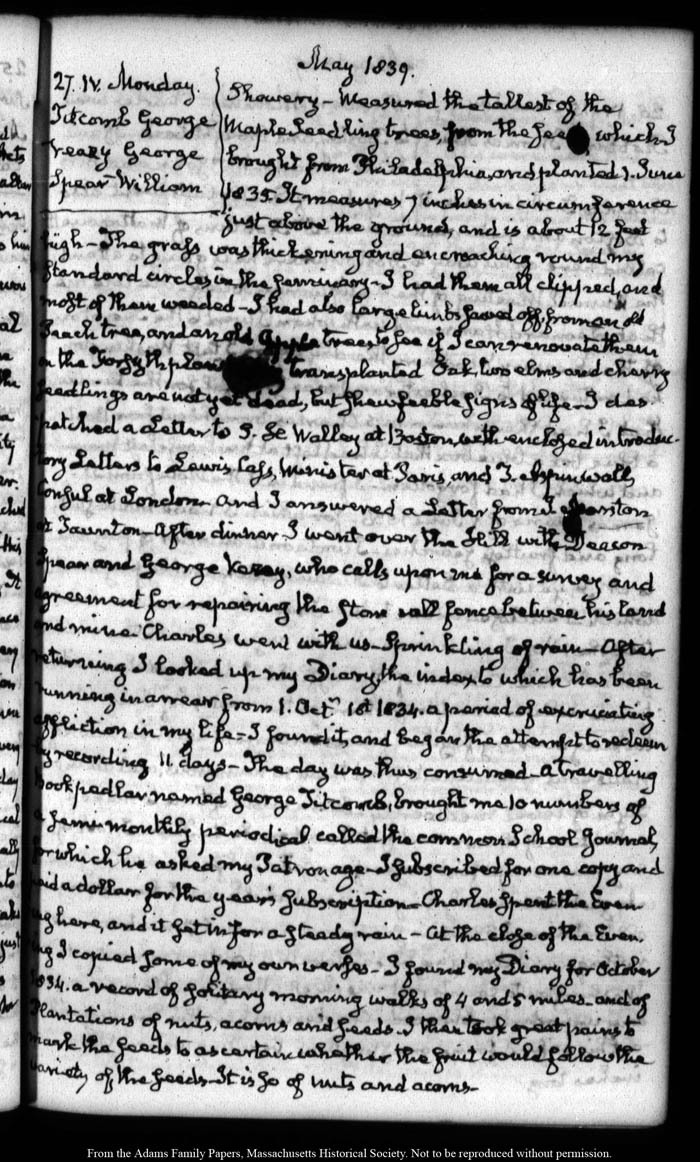 May 1839.
27. IV. Monday.
Titcomb George
Veazy George
Spear William
Showery – Measured the tallest of the
Maple Seedling trees, from the seed, which I
brought from Philadelphia, and planted 1. June
1835. It measures 7 inches in circumference
just above the ground, and is about 12 feet
high – The grass was thickening and encroaching round my
Standard circles in the Seminary – I had them all clipped, and
most of them weeded – I had also large limbs sawed off from an old
Peach tree, and an old Apple tree to see if I can renovate them
transplanted Oak, two elms and cherry
seedlings are not yet dead, but shew feeble signs of life – I des-
patched a Letter to S. H. Walley at Boston, with enclosed introduc-
tory Letters to Lewis Cass, Minister at Paris, and T. Aspinwall
Consul at London – and I answered a Letter from
at Taunton – After dinner I went over the Hill with Deacon
Spear and George Veazy, who calls upon me for a survey and
agreement for repairing the stone wall fence between his land
and mine. Charles went with us – Sprinkling of rain – After
returning I looked up my Diary, the index to which has been
running in arrear from 1. Octr. 1834. a period of excruciating
affliction in my life – I found it, and began the attempt to redeem
by recording 11 days – The day was thus consumed – A travelling
book pedlar named George Titcomb, brought me 10 numbers of
a semi monthly periodical called the common School Journal,
for which he asked my Patronage – I subscribed for one copy and
paid a dollar for the year's subscription – Charles spent the Even-
ing here, and it set in for a steady rain – At the close of the Even-
ing I copied some of my own verses – I found my Diary for October
1834. a record of solitary morning walks of 4 and 5 miles – and of
Plantations of nuts, acorns and seeds. I then took great pains to
mark the seeds to ascertain whether the fruit would follow the
variety of the seeds – It is so of nuts and acorns –
From the Adams Family Papers, Massachusetts Historical Society. Not to be reproduced without permission.